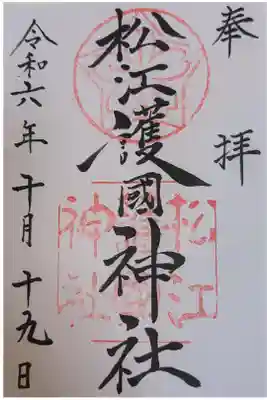 奉拝
松江護國神社
令和六年十月十九日
松江
神社